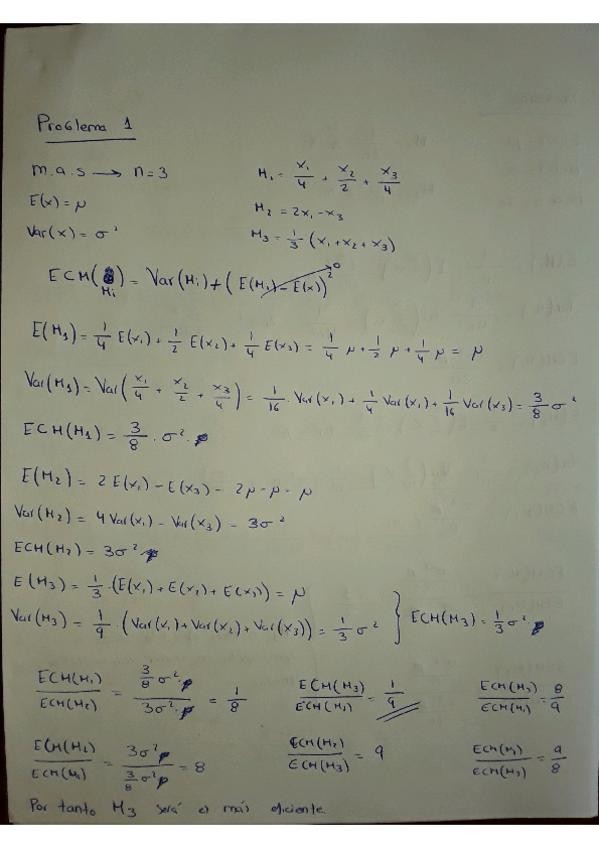 Problema 1
m.a.s → n=3
M₁ = x₁/4 + x₂/2 + x₃/4
E(x) = μ
M₂ = 2x₁ - x₃
Var(x) = σ²
M₃ = 1/3 · (x₁ + x₂ + x₃)
ECM(Mi) = Var(Mi) + (E(Mi) - E(x))² → 0
E(M₁) = 1/4 E(x₁) + 1/2 E(x₂) + 1/4 E(x₃) = 1/4 μ + 1/2 μ + 1/4 μ = μ
Var(M₁) = Var(x₁/4 + x₂/2 + x₃/4) = 1/16 · Var(x₁) + 1/4 Var(x₁) + 1/16 Var(x₃) = 3/8 σ²
ECM(M₁) = 3/8 · σ².
E(M₂) = 2E(x₁) - E(x₃) - 2μ - μ - μ
Var(M₂) = 4Var(x₁) - Var(x₃) - 3σ²
ECM(M₂) = 3σ²
E(M₃) = 1/3 · (E(x₁) + E(x₁) + E(x₃)) = μ
Var(M₃) = 1/9 · (Var(x₁) + Var(x₂) + Var(x₃)) = 1/3 σ² } ECM(M₃) = 1/3 σ².
ECM(M₁)/ECM(M₂) = 3/8 σ²·μ / 3σ²·μ = 1/8
ECM(M₃)/ECM(M₂) = 1/9
ECM(M₃)/ECM(M₁) = 8/9
ECM(M₂)/ECM(M₁) = 3σ²μ / 3/8 σ²μ = 8
ECM(M₂)/ECM(M₃) = 9
ECM(M₁)/ECM(M₃) = 9/8
Por tanto M₃ será el más eficiente